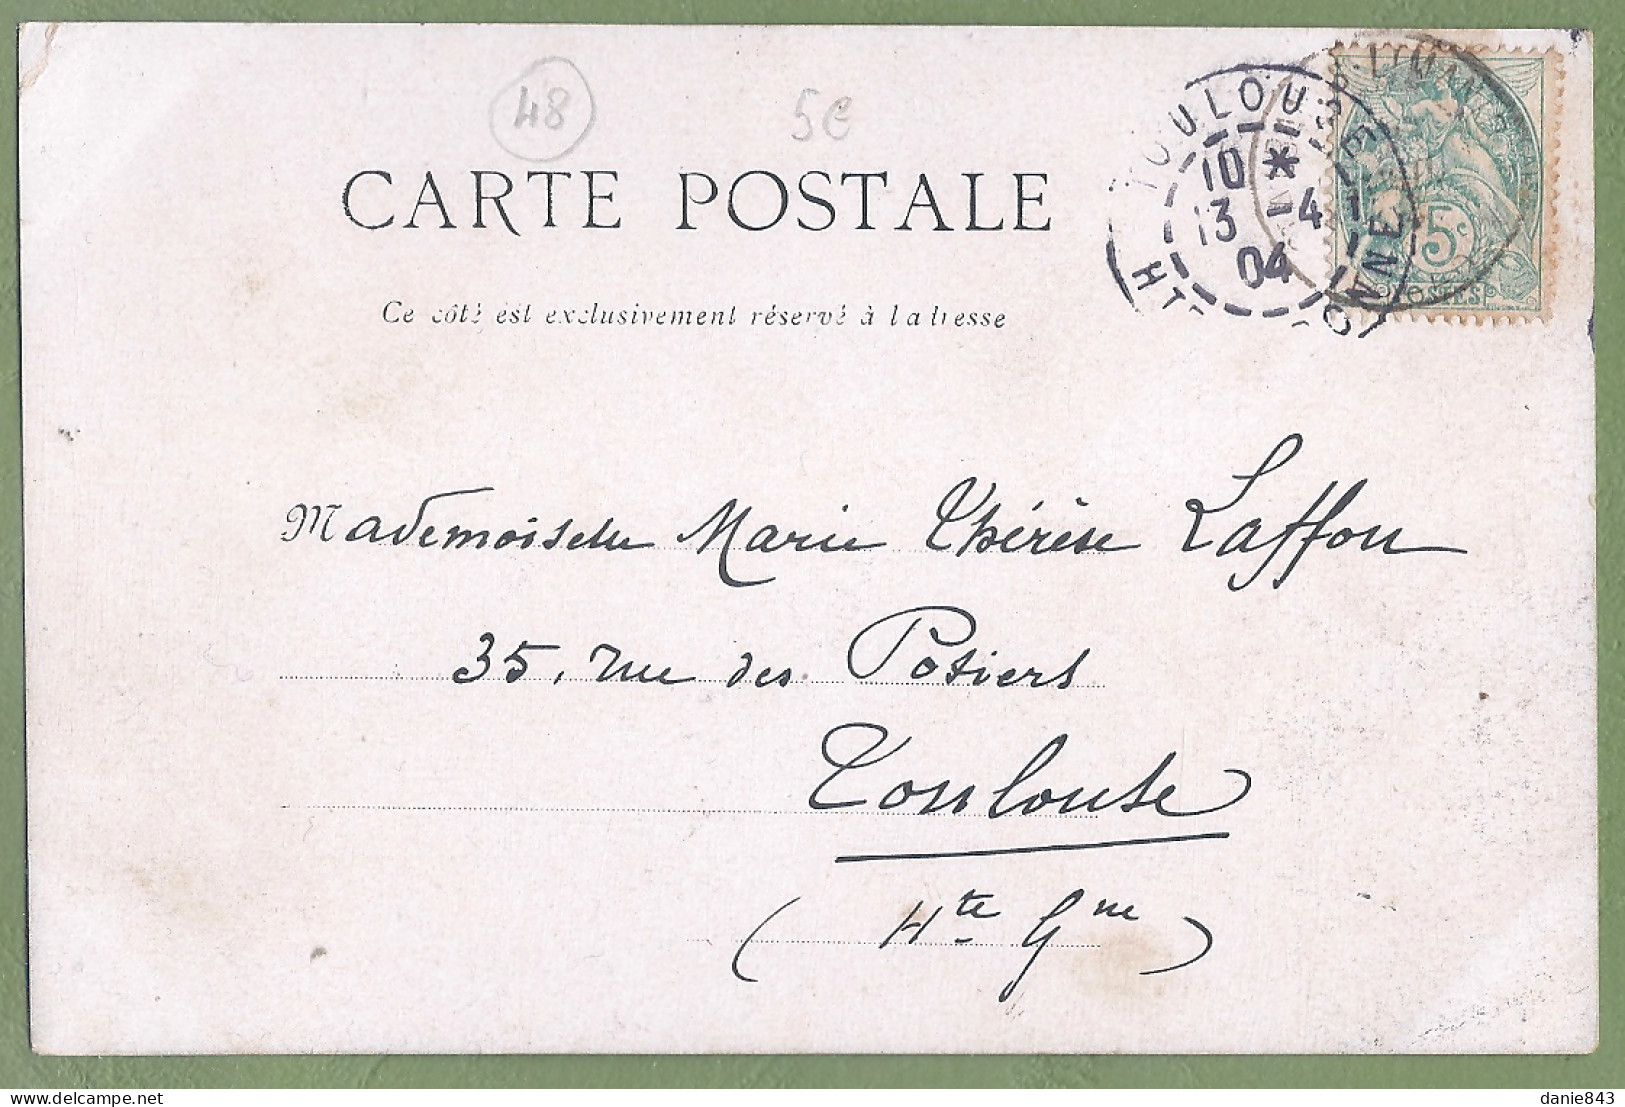 48
5€
CARTE POSTALE
Ce côté est exclusivement réservé à l'adresse
TOULOUSE
10 *
13 -4
04
Hte GARONNE
5c
POSTES
Mademoiselle Marie Thérèse Laffon
35, rue des Potiers
Toulouse
(Hte Gne)
danie843